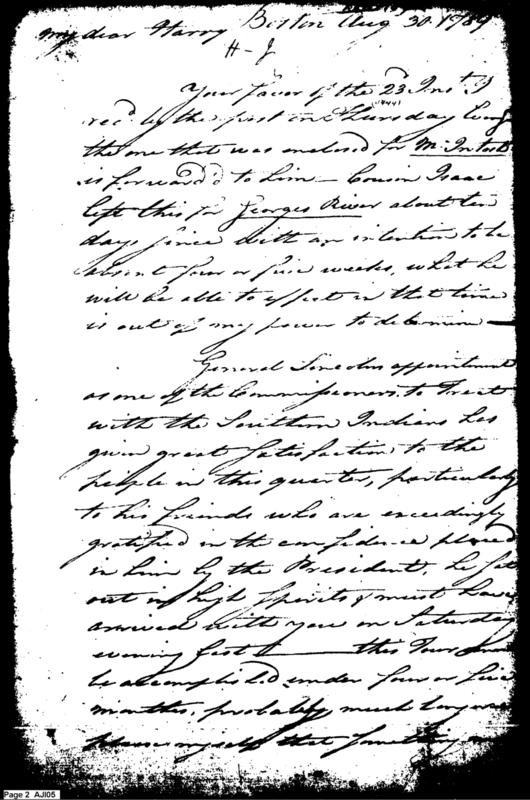 Boston Aug 30 1789
my dear Harry
H-J
Your favor of the 23d Inst I
recd by the post on Thursday Eveng
the one that was enclosed for Mr. Intosh
is forward'd to him — Cousin Isaac
left this for Georges River about ten
days since with an intention to be
absent four or five weeks, what he
will be able to effect in that time
is out of my power to determine —
General Lincolns appointment
as one of the Commissioners, to Treat
with the Southern Indians has
given great Satisfaction to the
people in this quarter, particularly
to his friends who are exceedingly
gratified in the confidence placed
in him by the President, he sat
out in high Spirits & must have
arrived with you on Saturday
evening last — this Tour
be accomplish'd under four or five
months, probably much longer
please myself that something
Page 2 AJI05